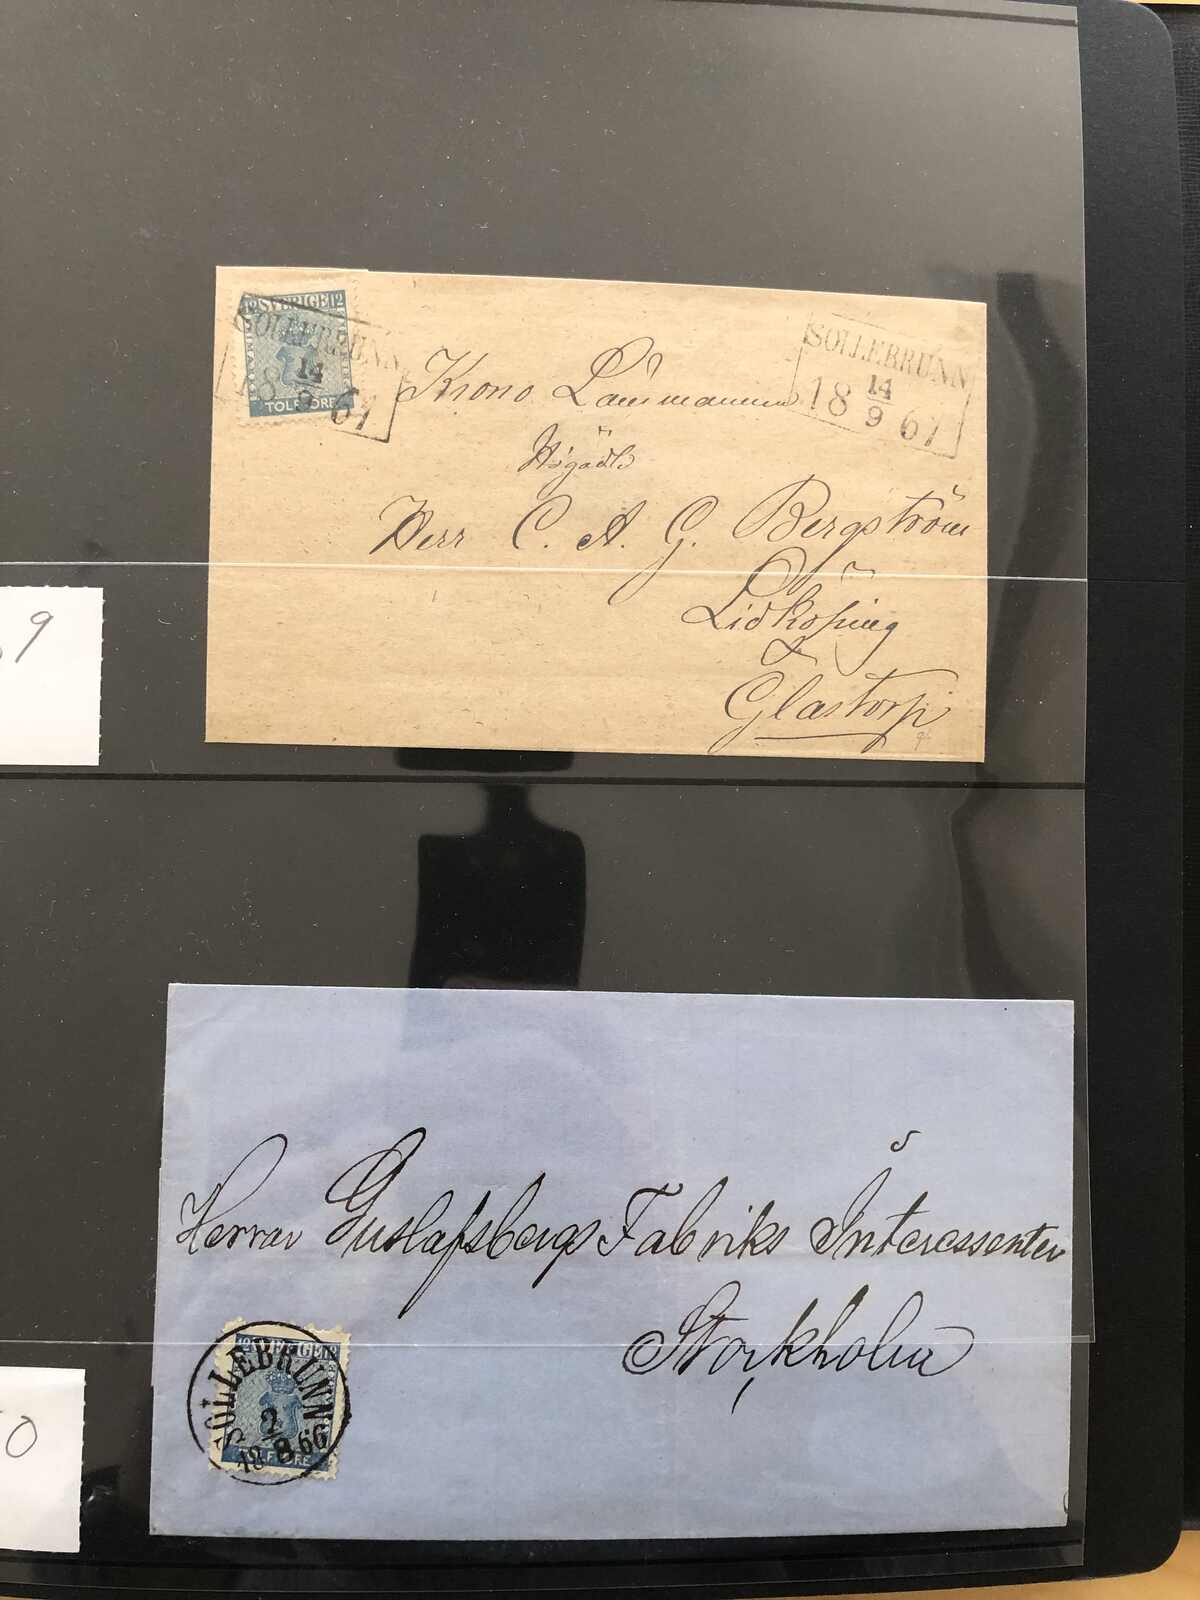 12 SVERIGE 12
TOLF ÖRE
SOLLEBRUNN
18 14/9 67
SOLLEBRUNN
18 14/9 67
Krono Länsmannen
Herr C. A. G. Bergström
Lidköping
&
Glastorp
9
Herrar Gustafsbergs Fabriks Interessenter
Stockholm
12 SVERIGE 12
TOLF ÖRE
SOLLEBRUNN
2/8
18 66
0